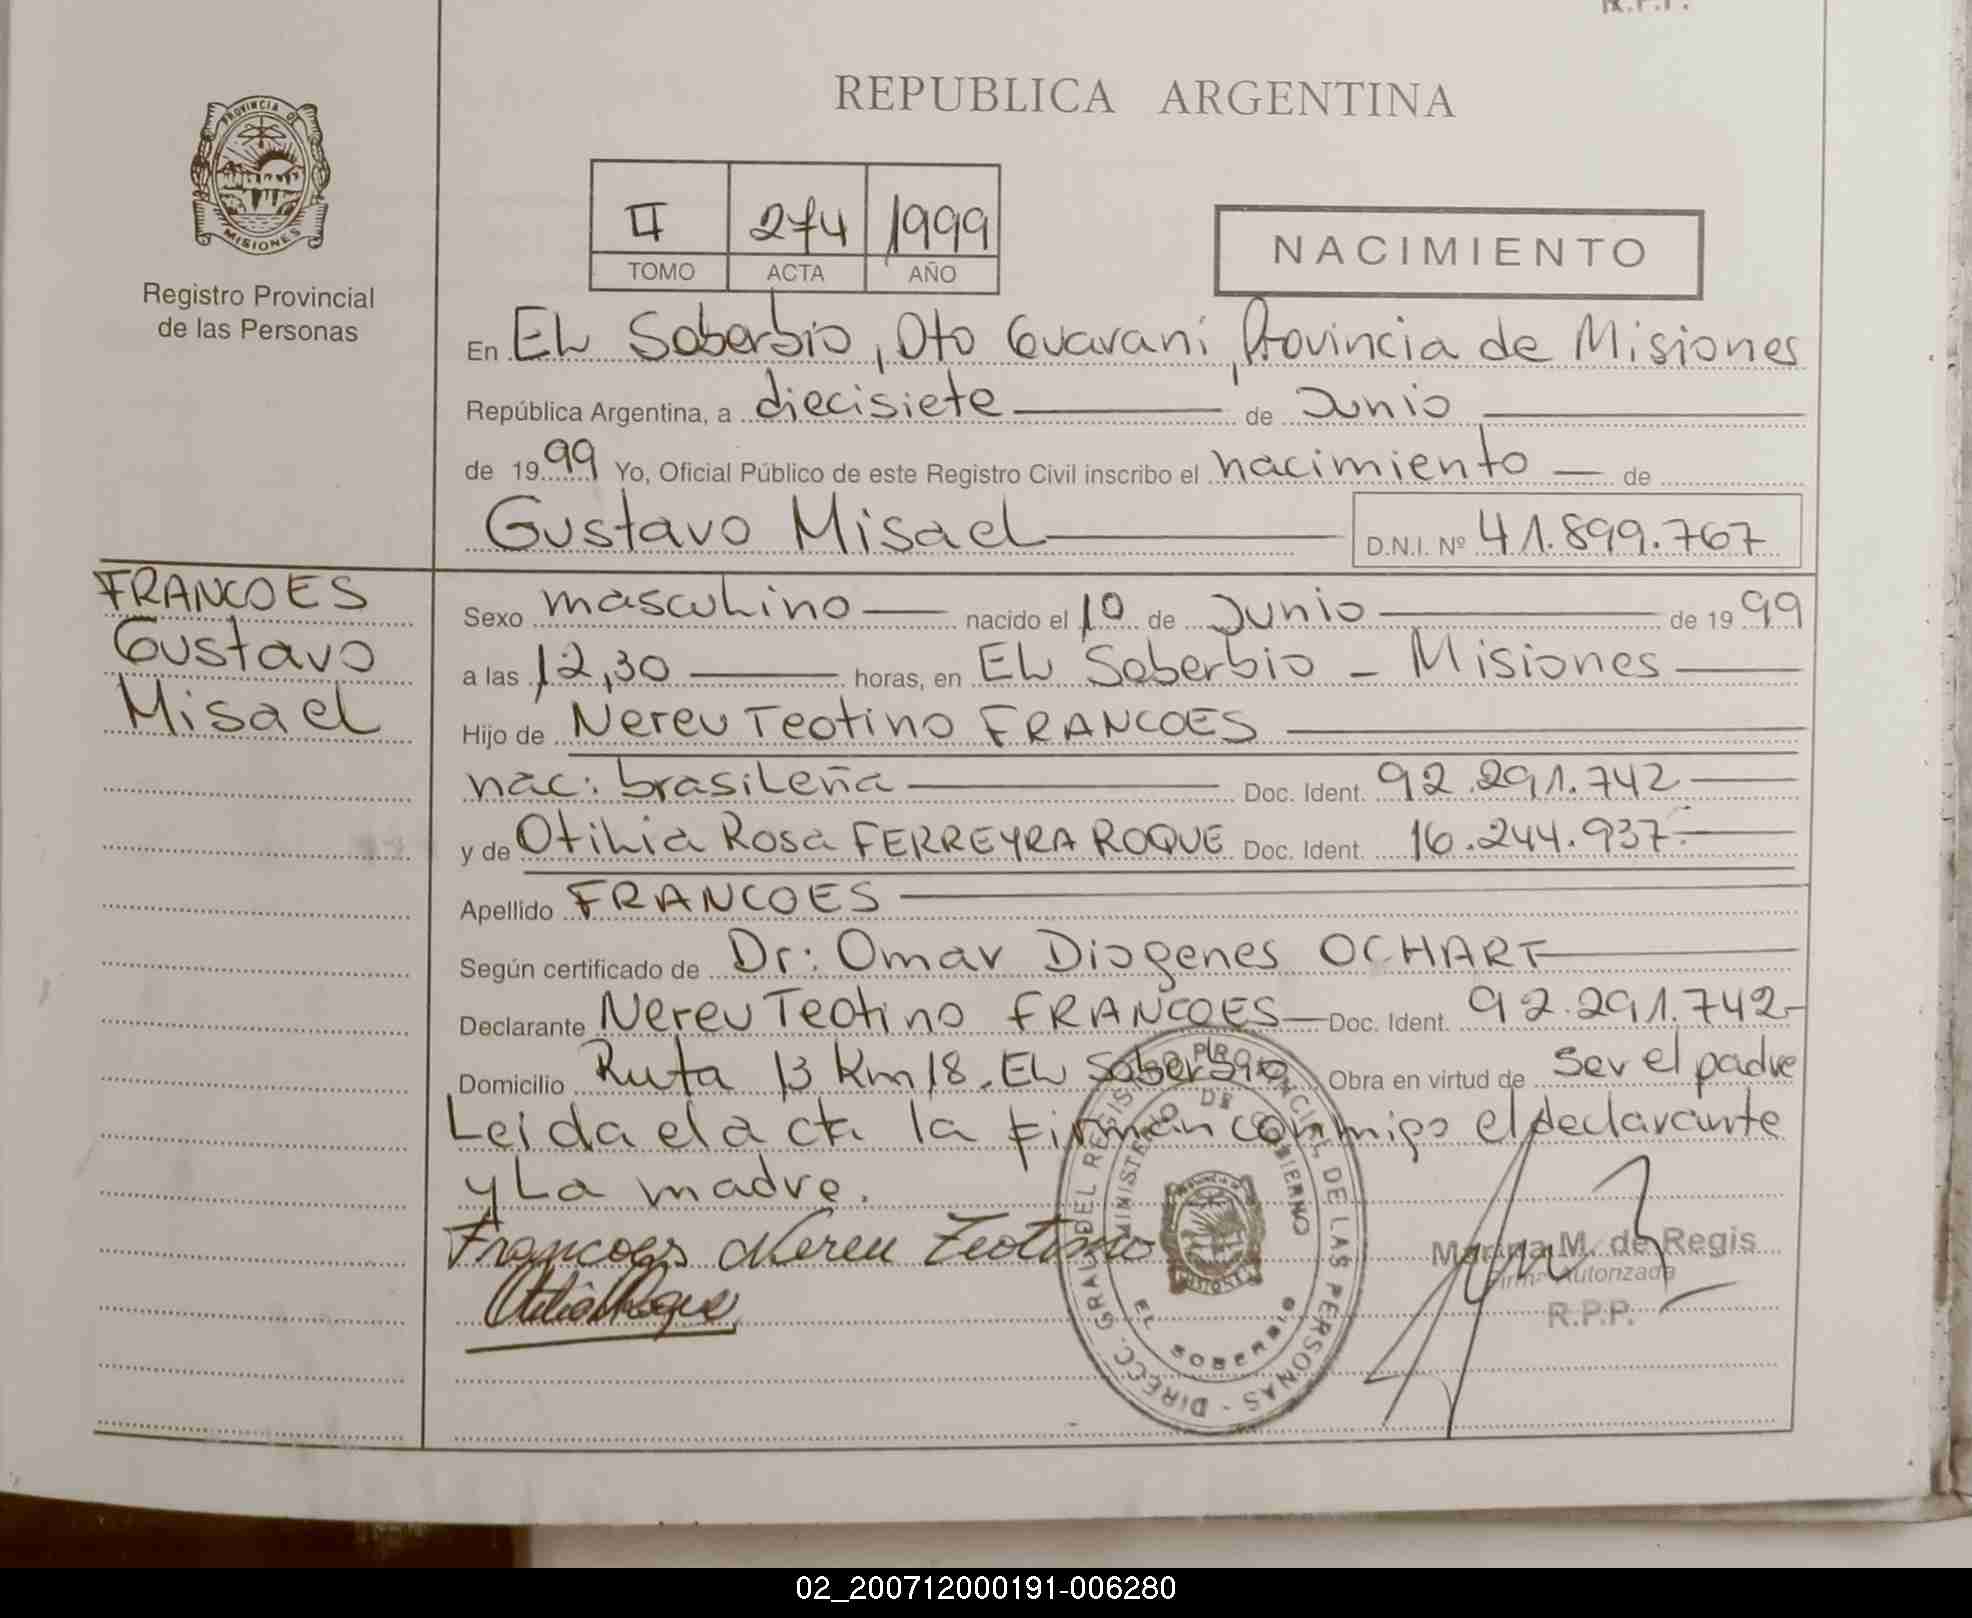 R.P.P.
REPUBLICA ARGENTINA
PROVINCIA DE
MISIONES
Registro Provincial
de las Personas
II 274 1999
TOMO ACTA AÑO
NACIMIENTO
En EL Soberbio, Dto Guaraní, Provincia de Misiones
República Argentina, a diecisiete de Junio
de 1999 Yo, Oficial Público de este Registro Civil inscribo el nacimiento de
Gustavo Misael D.N.I. Nº 41.899.767
FRANCOES
Gustavo
Misael
Sexo masculino nacido el 10 de Junio de 1999
a las 12,30 horas, en EL Soberbio - Misiones
Hijo de Nereu Teotino FRANCOES
nac: brasileña Doc. Ident. 92.291.742
y de Otilia Rosa FERREYRA ROQUE Doc. Ident. 16.244.937
Apellido FRANCOES
Según certificado de Dr: Omar Diogenes OCHART
Declarante Nereu Teotino FRANCOES Doc. Ident. 92.291.742
Domicilio Ruta 13 Km 18. EL Soberbio Obra en virtud de ser el padre
Leida el acta la firman conmigo el declarante
y La madre.
Francoes Nereu Teotino
Otilia Roque
DIRECC. GRAL DEL REGISTRO PROVINCIAL DE LAS PERSONAS
MINISTERIO DE GOBIERNO
EL SOBERBIO
M. de Regis
Firma Autorizada
R.P.P.
02_200712000191-006280